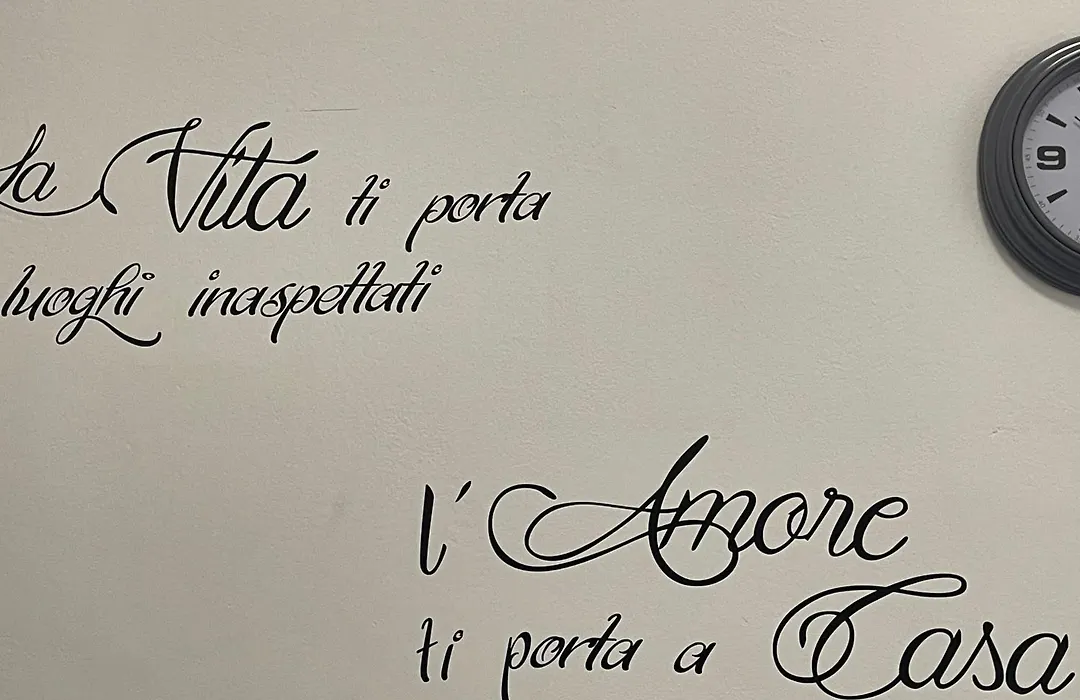 la Vita ti porta
luoghi inaspettati
l'Amore
ti porta a Casa
9